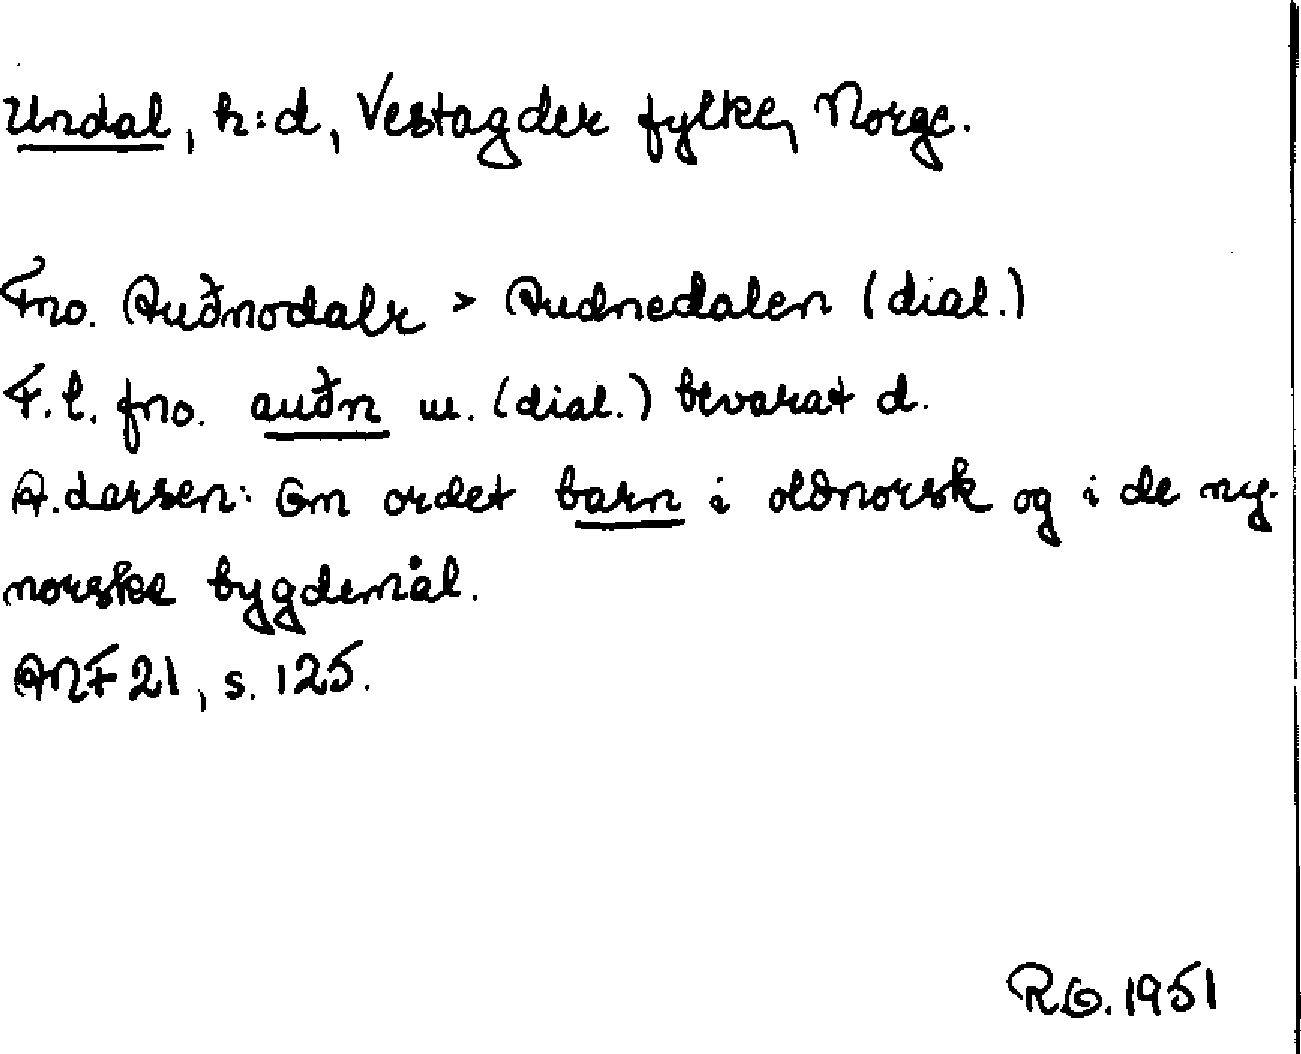 Undal, h:d, Vestagder fylke, Norge.
Fno. Auðnodalr > Audnedalen (dial.)
F.l. fno. auðn m. (dial.) bevarat d.
A. Larsen: Om ordet barn i oldnorsk og i de ny-
norske bygdemål.
ANF 21, s. 125.
R.G. 1951